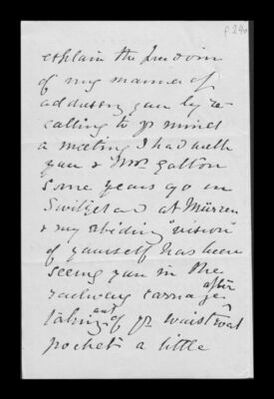 explain the freedom
of my manner of
address to you by re-
calling to yr mind
a meeting I had with
you & Mrs Galton
some years ago in
Switzerland at Mürren
& my abiding "vision"
of yourself has been
seeing you in the
railway carriage after
taking out of yr waistcoat
pocket a little